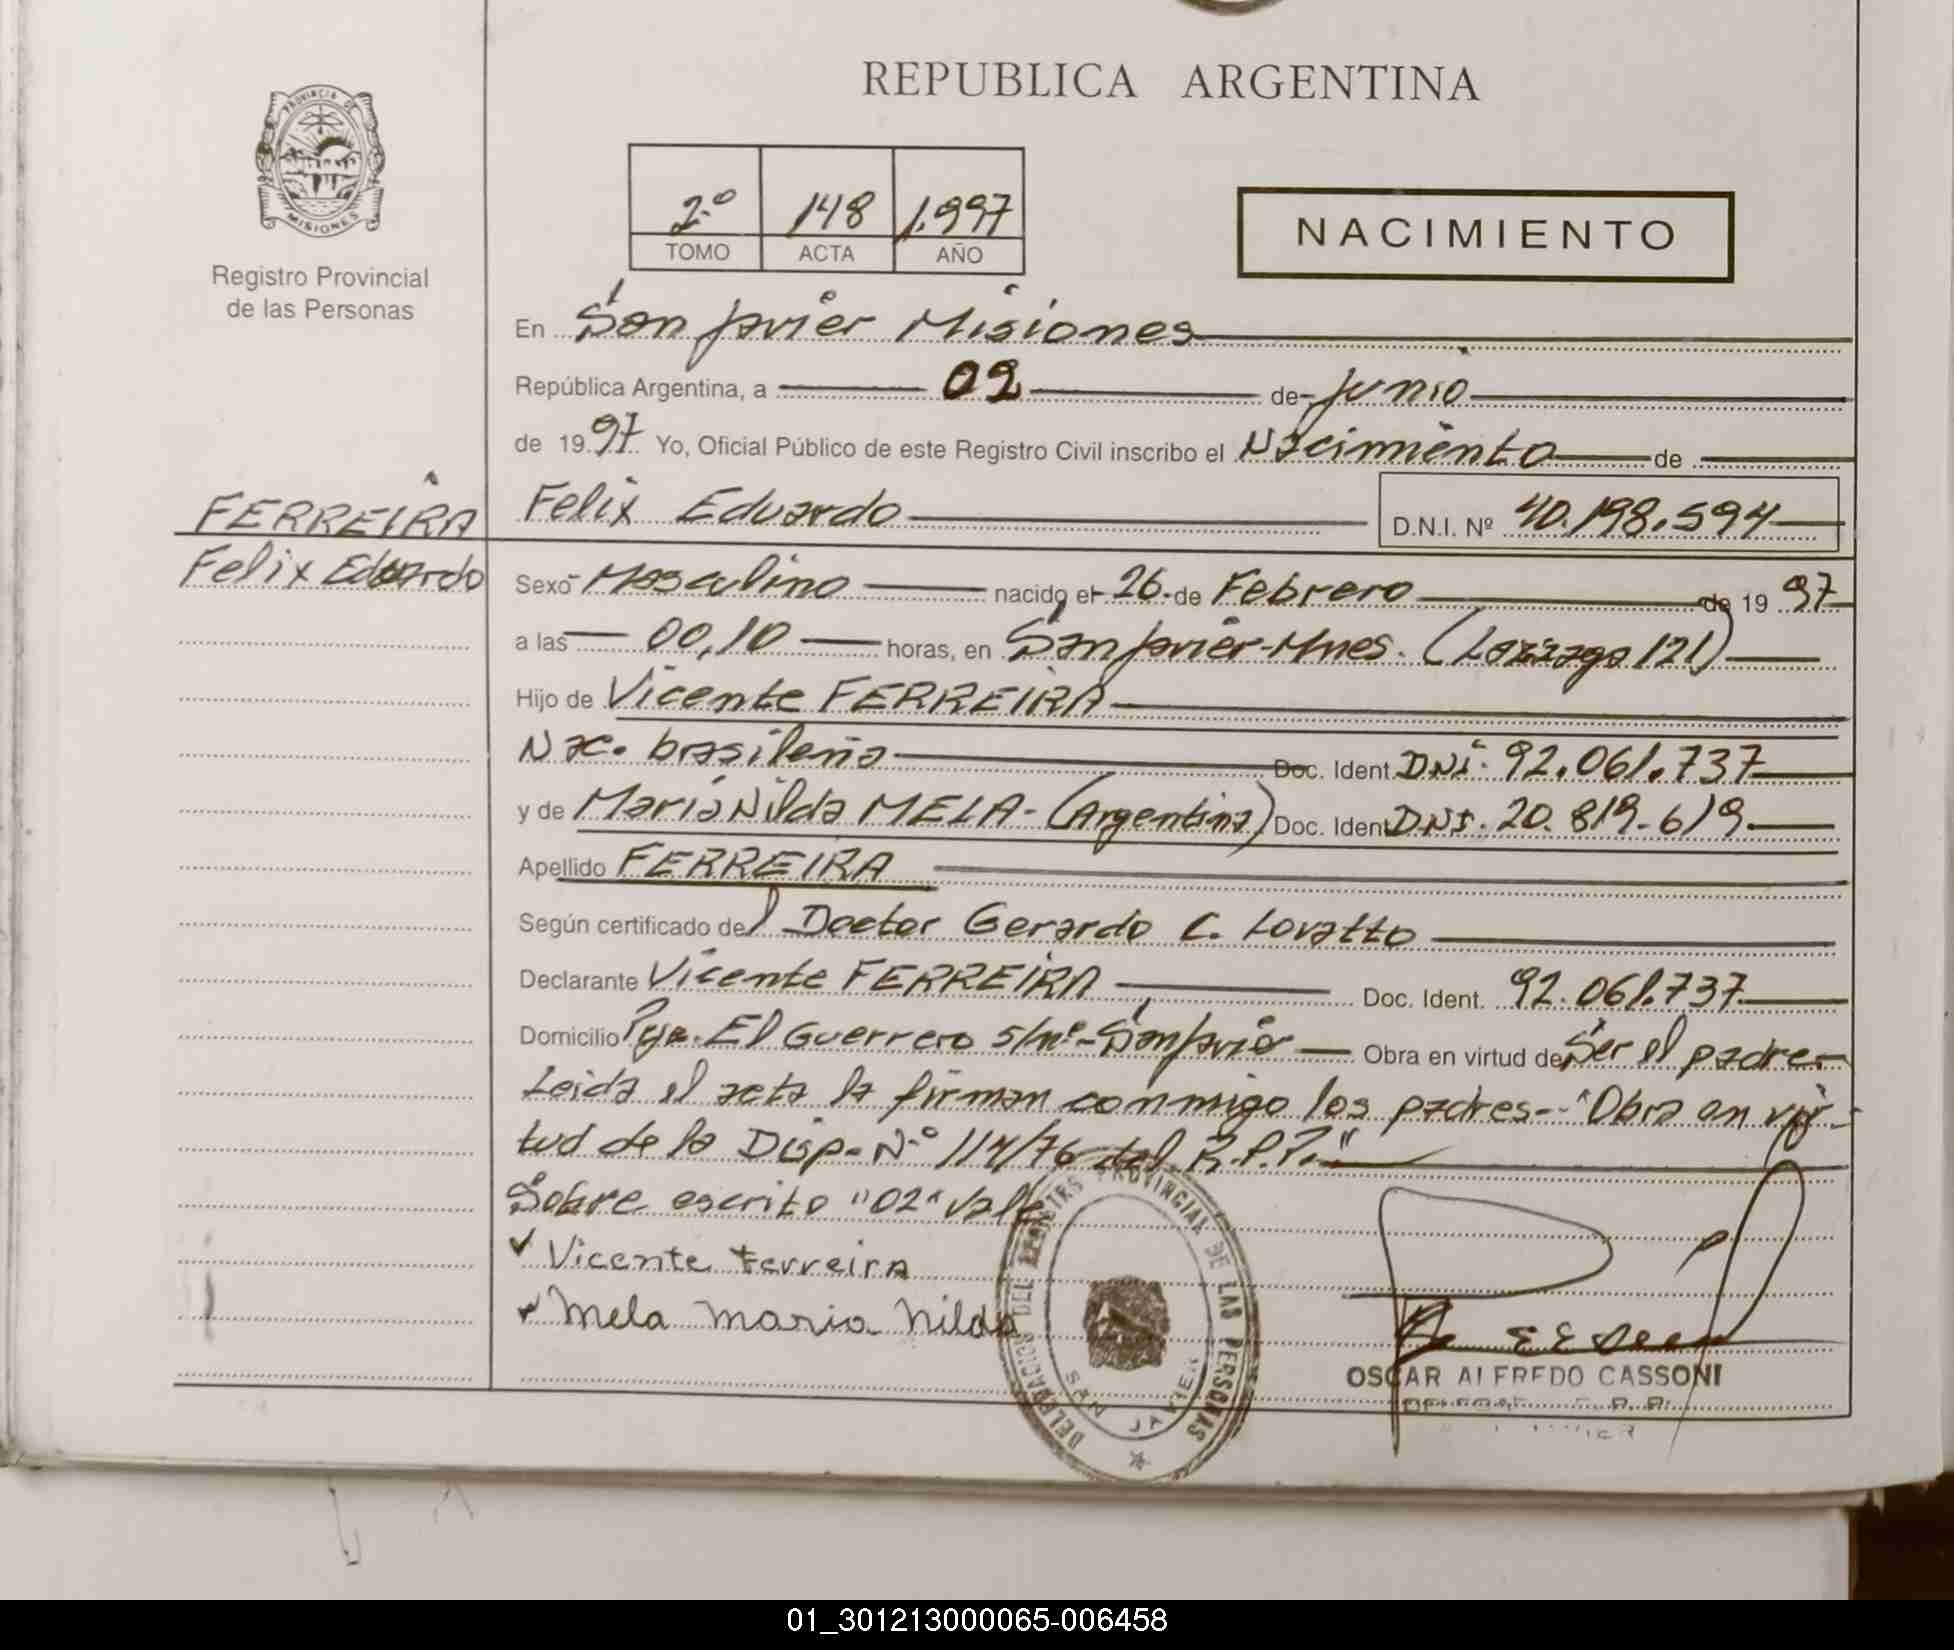 PROVINCIA DE
MISIONES
Registro Provincial
de las Personas
REPUBLICA ARGENTINA
2º 148 1.997
TOMO ACTA AÑO
NACIMIENTO
En San Javier Misiones
República Argentina, a 02 de junio
de 1997 Yo, Oficial Público de este Registro Civil inscribo el Nacimiento de
FERREIRA Felix Eduardo D.N.I. Nº 40.198.594
Felix Eduardo Sexo Masculino nacido el 26 de Febrero de 1997
a las 00,10 horas, en San Javier-Mnes. (Lozzaga 121)
Hijo de Vicente FERREIRA
Nac. brasileña Doc. Ident. DNI. 92.061.737
y de María Nilda MELA - (Argentina) Doc. Ident. DNI. 20.819.619
Apellido FERREIRA
Según certificado del Doctor Gerardo C. Lovatto
Declarante Vicente FERREIRA Doc. Ident. 92.061.737
Domicilio Pje. El Guerrero s/nº - San Javier Obra en virtud de Ser el padre.-
Leida el acta la firman conmigo los padres.- "Obra en vir-
tud de la Disp. Nº 114/76 del R.P.P."
Sobre escrito "02" Vale
✓ Vicente Ferreira
✓ Mela Maria Nilda
DELEGACION DEL REGISTRO PROVINCIAL DE LAS PERSONAS
SAN JAVIER
OSCAR ALFREDO CASSONI
01_301213000065-006458